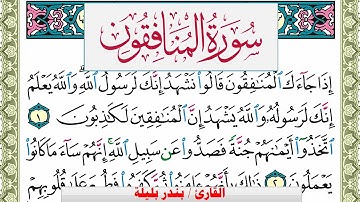 سُورَةُ المُنَافِقُونَ
إِذَا جَآءَكَ ٱلْمُنَٰفِقُونَ قَالُوا۟ نَشْهَدُ إِنَّكَ لَرَسُولُ ٱللَّهِ ۗ وَٱللَّهُ يَعْلَمُ
إِنَّكَ لَرَسُولُهُۥ وَٱللَّهُ يَشْهَدُ إِنَّ ٱلْمُنَٰفِقِينَ لَكَٰذِبُونَ ١
ٱتَّخَذُوٓا۟ أَيْمَٰنَهُمْ جُنَّةً فَصَدُّوا۟ عَن سَبِيلِ ٱللَّهِ ۚ إِنَّهُمْ سَآءَ مَا كَانُوا۟
يَعْمَلُونَ ٢ ذَٰلِكَ بِأَنَّهُمْ ءَامَنُوا۟ ثُمَّ كَفَرُوا۟ فَطُبِعَ عَلَىٰ قُلُوبِهِمْ
القارئ / بندر بليلة